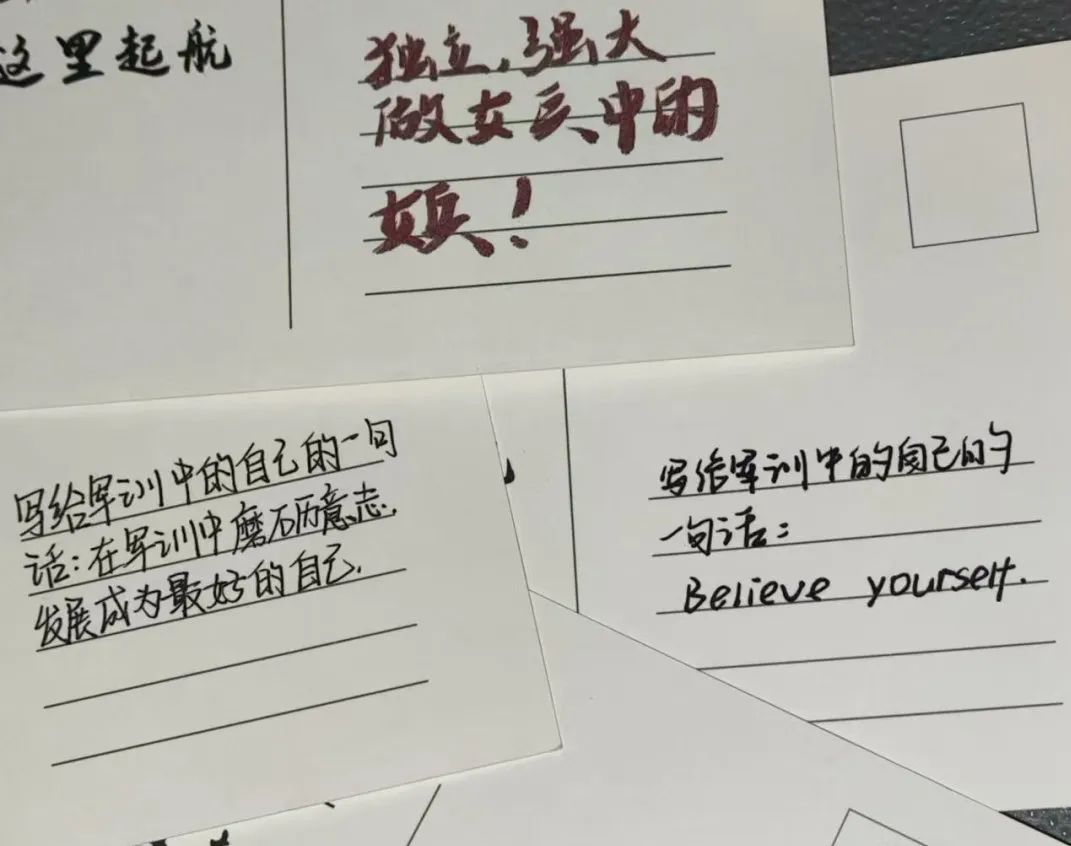 这里起航
独立,强大
做女兵中的
女兵!
写给军训中的自己的一句
话:在军训中磨砺意志,
发展成为最好的自己.
写给军训中的自己的
一句话:
Believe yourself.